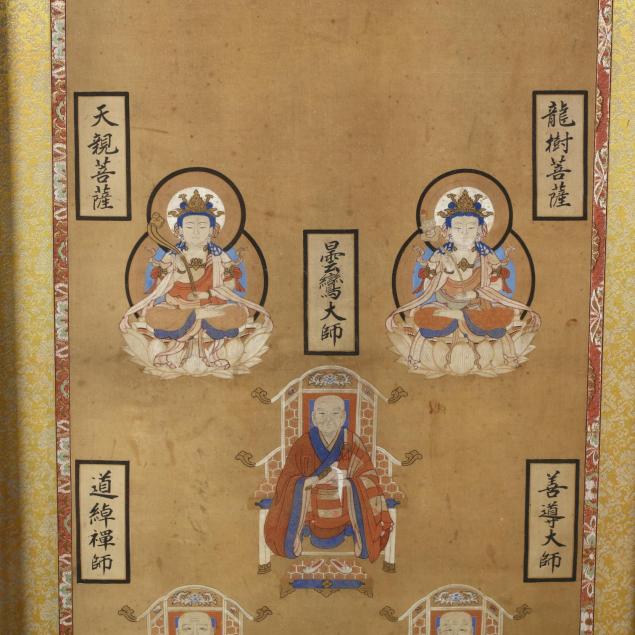 龍樹菩薩
天親菩薩
曇鸞大師
善導大師
道綽禪師